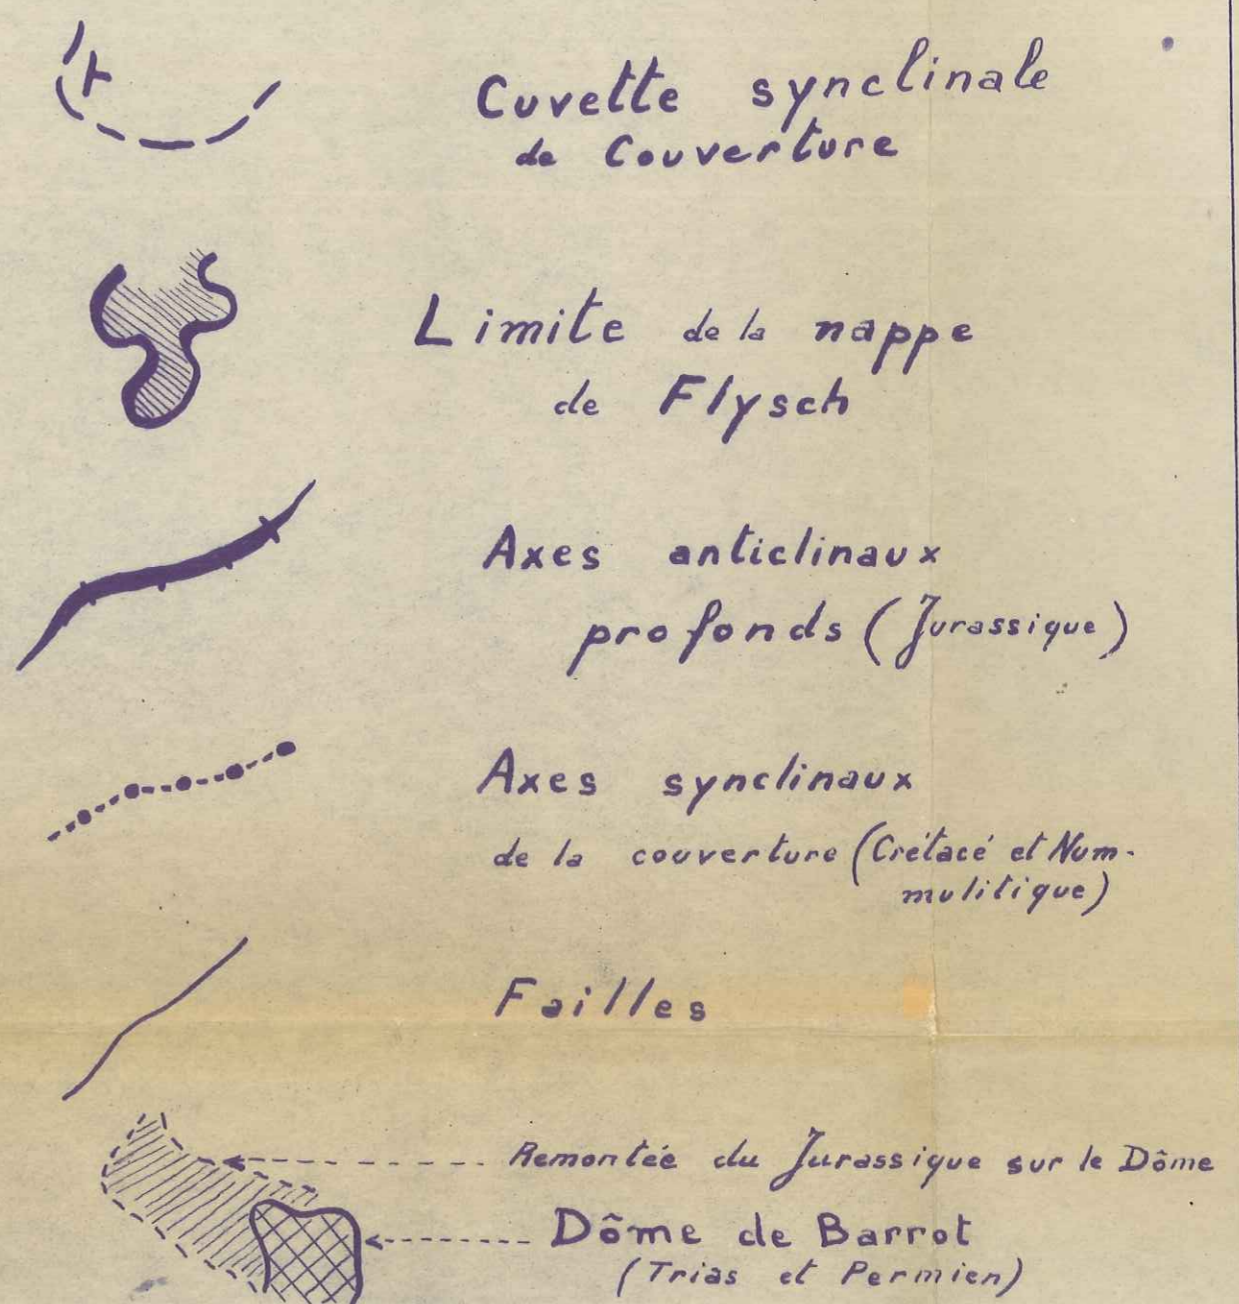 Cuvette synclinale
de Couverture
Limite de la nappe
de Flysch
Axes anticlinaux
profonds (Jurassique)
Axes synclinaux
de la couverture (Crétacé et Num-
mulitique)
Failles
Remontée du Jurassique sur le Dôme
Dôme de Barrot
(Trias et Permien)